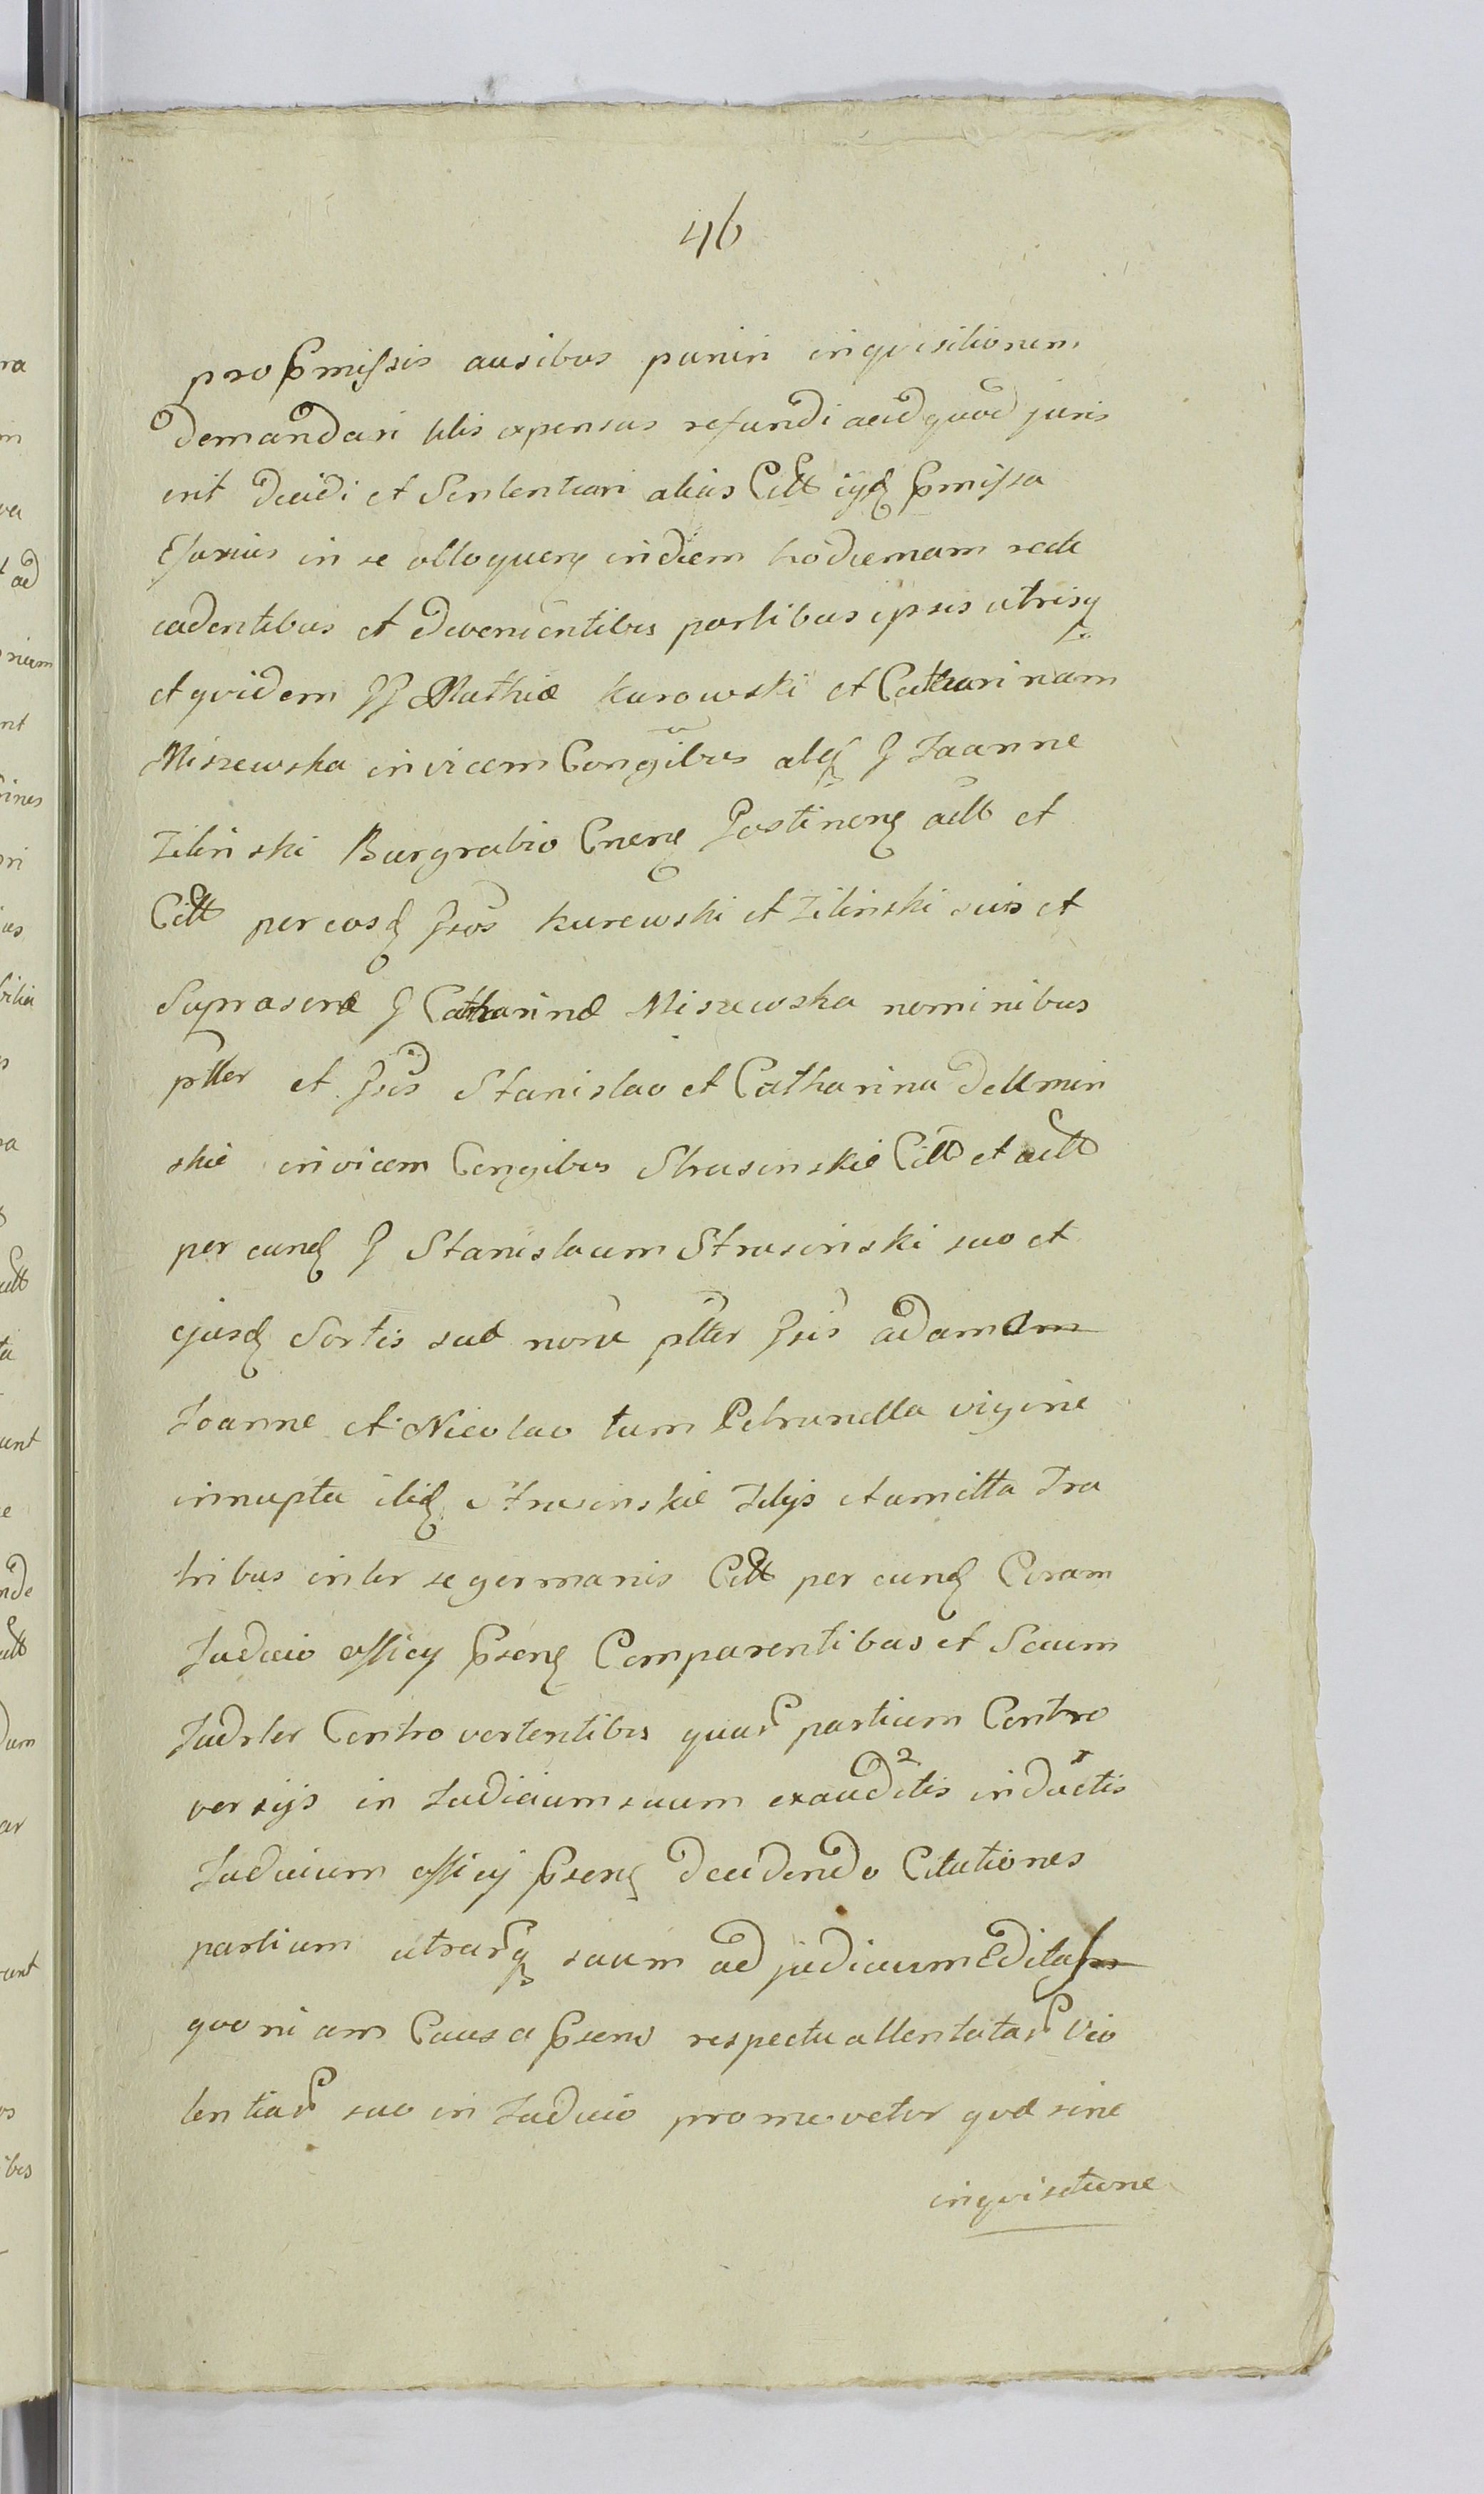 46
pro pmissis ausibus puniri inqvisitionem
demandari litis expensas refundi ac id quod juris
erit decidi et Sententiari alias Citt ijsd pmissa
in se in diem hodiernam recte
cadentibus et devenientibus partibus ipsis utrisq
et qvidem GG Mathia Kurowski et Catharinam
Miszewska invicem Congibus atq G Joanne
Zilinski Burgrabio Gostinen actt et
Citt per eosd Gsos Kurowski et Zilinski suis et
G Catharinæ Miszewska nominibus
ptter et Gsis Stanislao et Catharina Dettmin
skie invicem Congibus Strusinskie Citt et actt
per eund G Stanislaum Strusinski suo et
ejusd Sortis suæ noie ptter Gsis Adamo
Joanne et Nicolao tum Petrunella virgine
innupta Strusinskie Filijs et amitta Fra
tribus inter se germanis Citt per eund Coram
Judicio officij psen Comparentibus et Secum
Judrter Controvertentibus quar partium Contro
versijs in Judicium suum exauditis inductis
Judicium officij psen decidendo Citationes
partium utrarq suum ad judicium Editas
quoniam Causa psens respectu attentatar Vio
lentiar suo in Judicio promovetur qvæ sine
inqvisitione